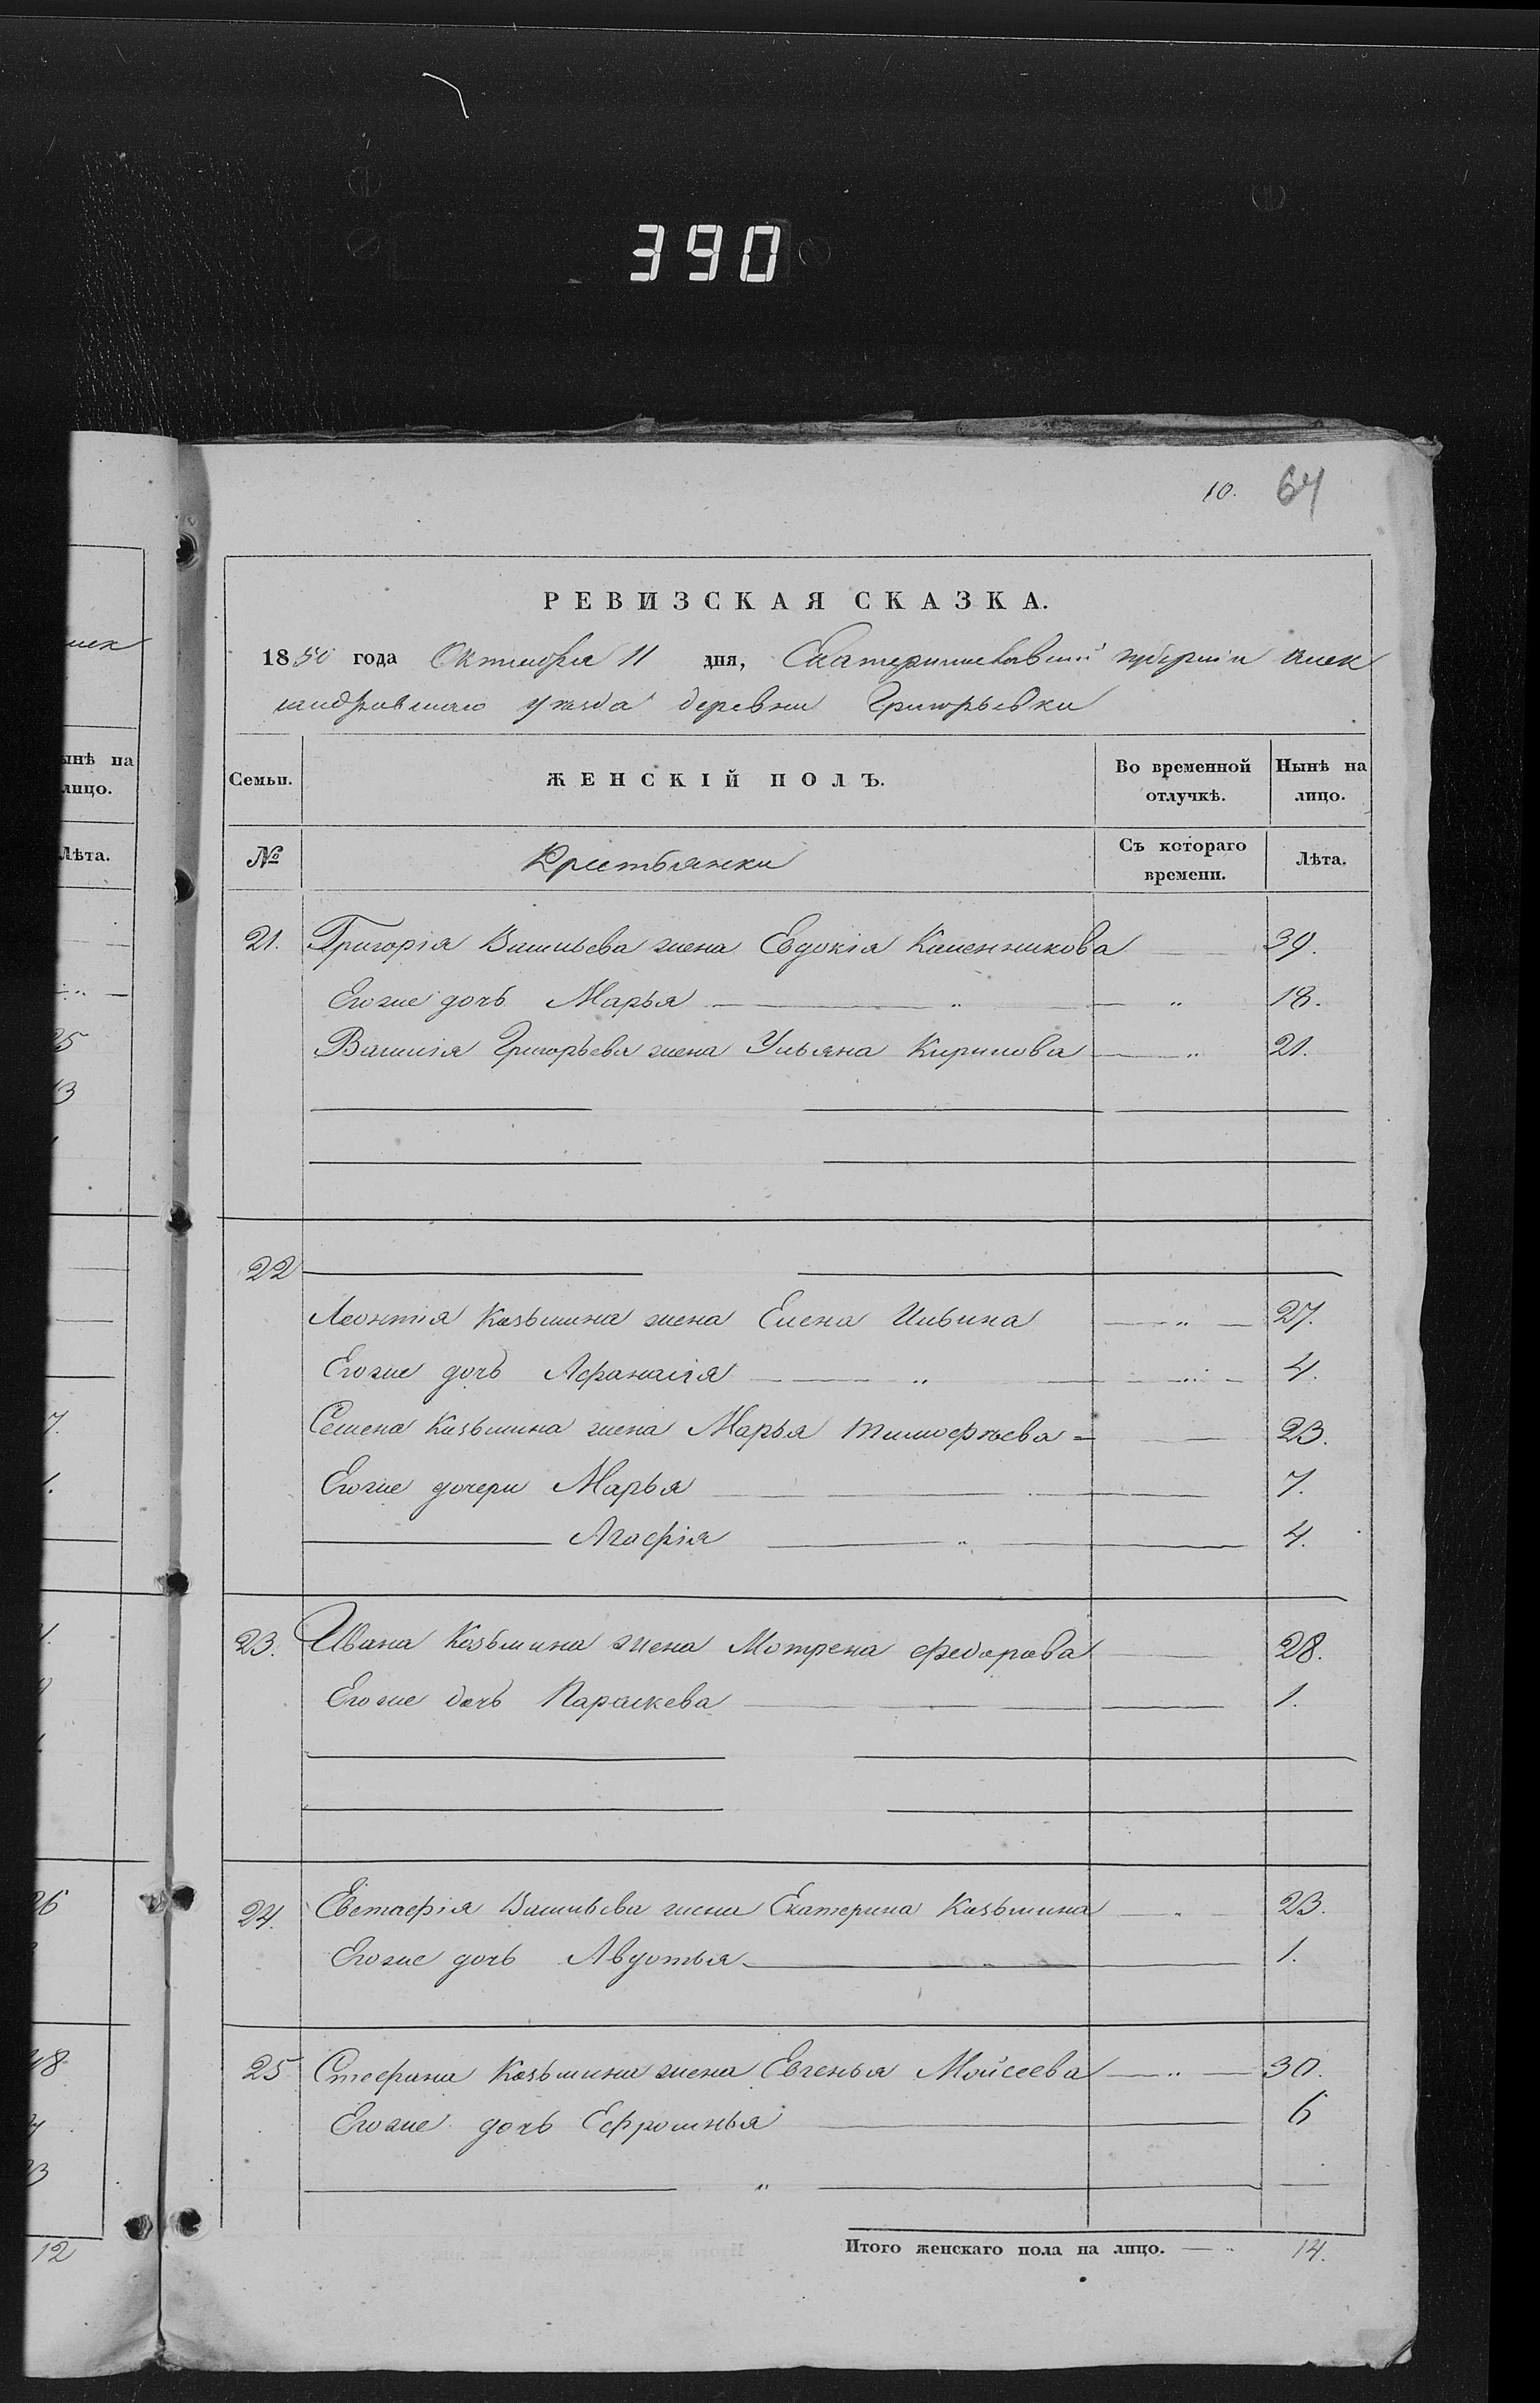 390
10. 64
РЕВИЗСКАЯ СКАЗКА.
1850 года Октября 11 дня, Екатеринославской губернiи Алек
сандровскаго уезда деревни Григорьевки
Семьи. ЖЕНСКІЙ ПОЛЪ. Во временной отлучкѣ. Нынѣ на лицо.
№ Крестьянки Съ котораго времени. Лѣта.
21. Григорія Васильева жена Евдокія Каменникова 39.
Егоже дочь Марья " " 18.
Василія Григорьева жена Ульяна Кирилова " 21.
22
Леонтія Козьмина жена Елена Ильина " 27.
Егоже дочь Афанасія " " 4.
Семена Козьмина жена Марья Тимофѣева 23.
Егоже дочери Марья 7.
Агафія " 4.
23. Ивана Козьмина жена Мотрена Федорова 28.
Егоже дочь Параскева 1.
24. Евстафія Васильева жена Екатерина Козьмина " 23.
Егоже дочь Авдотья " 1.
25 Стефана Козьмина жена Евгенья Мойсеева " 30.
Егоже дочь Ефросинья 6
"
Итого женскаго пола на лицо. " 14.
лек
ынѣ на
лицо.
Лѣта.
25
13
7.
1.
26
48
23
12